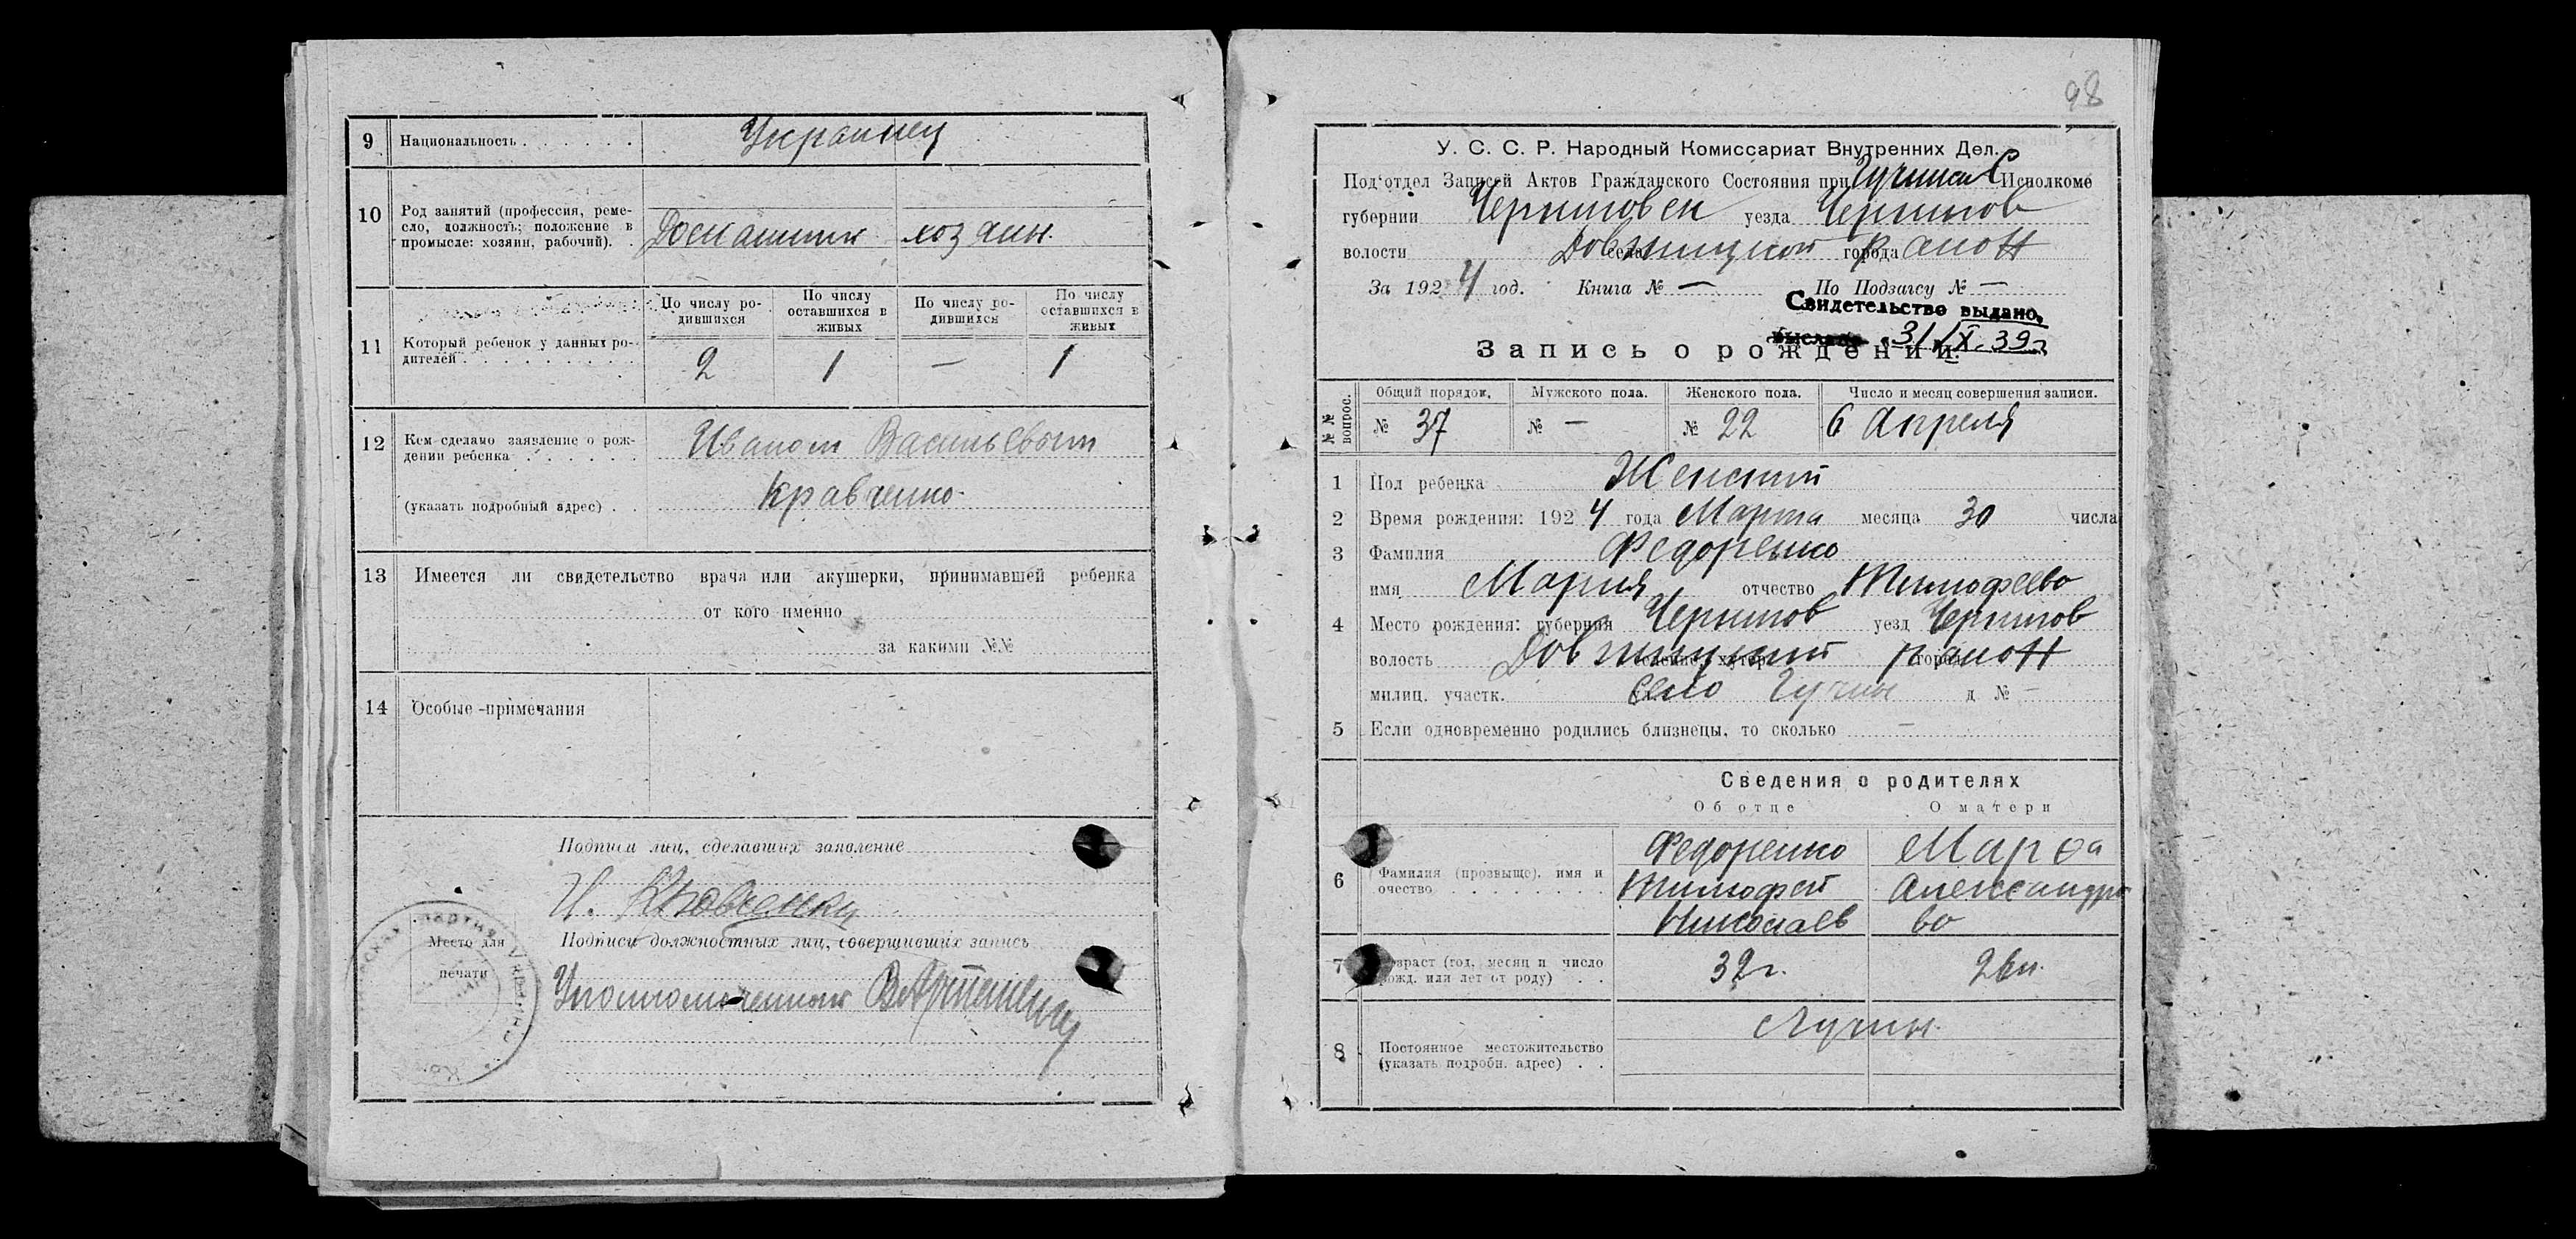 9 Национальность . . . . . . Украинец
10 Род занятий (профессия, реме-
сло, должность; положение в
промысле: хозяин, рабочий). .
хозяин.
По числу ро-
дившихся
По числу
оставшихся в
живых
По числу ро-
дившихся
По числу
оставшихся в
живых
11 Который ребенок у данных ро-
дителей . . . . . . . . . .
2 1 — 1
12 Кем сделано заявление о рож-
дении ребенка . . . . . .
Иваном Васильевым
(указать подробный адрес) . .
Кравченко.
13 Имеется ли свидетельство врача или акушерки, принимавшей ребенка
от кого именно
за какими №№
14 Особые примечания
Подписи лиц, сделавших заявление
И. Кравченко
Подписи должностных лиц, совершивших запись
Место для
печати
98
У. С. С. Р. Народный Комиссариат Внутренних Дел.
Под'отдел Записей Актов Гражданского Состояния при Гучинск С Исполкоме
губернии Черниговск уезда Чернигов
волости села города
За 1924 год. Книга № — По Подзагсу № —
Свидетельство выдано,
выслано 31/X.39г
Запись о рождении.
№№ вопрос.
Общий порядок. Мужского пола. Женского пола. Число и месяц совершения записи.
№ 37 № — № 22 6 Апреля
1 Пол ребенка Женский
2 Время рождения: 1924 года Марта месяца 30 числа
3 Фамилия Федоренко
имя Мария отчество Тимофеево
4 Место рождения: губерния Чернигов уезд Чернигов
волость
милиц. участк. село Гучин д № —
5 Если одновременно родились близнецы, то сколько —
Сведения о родителях
Об отце О матери
6 Фамилия (прозвище), имя и
очество . . . . . . . .
Федоренко Марѳа
Тимофей Александро
Николаев во
7 Возраст (год, месяц и число
рожд. или лет от роду) . .
32г. 26л.
8 Постоянное местожительство
(указать подробн. адрес) . .